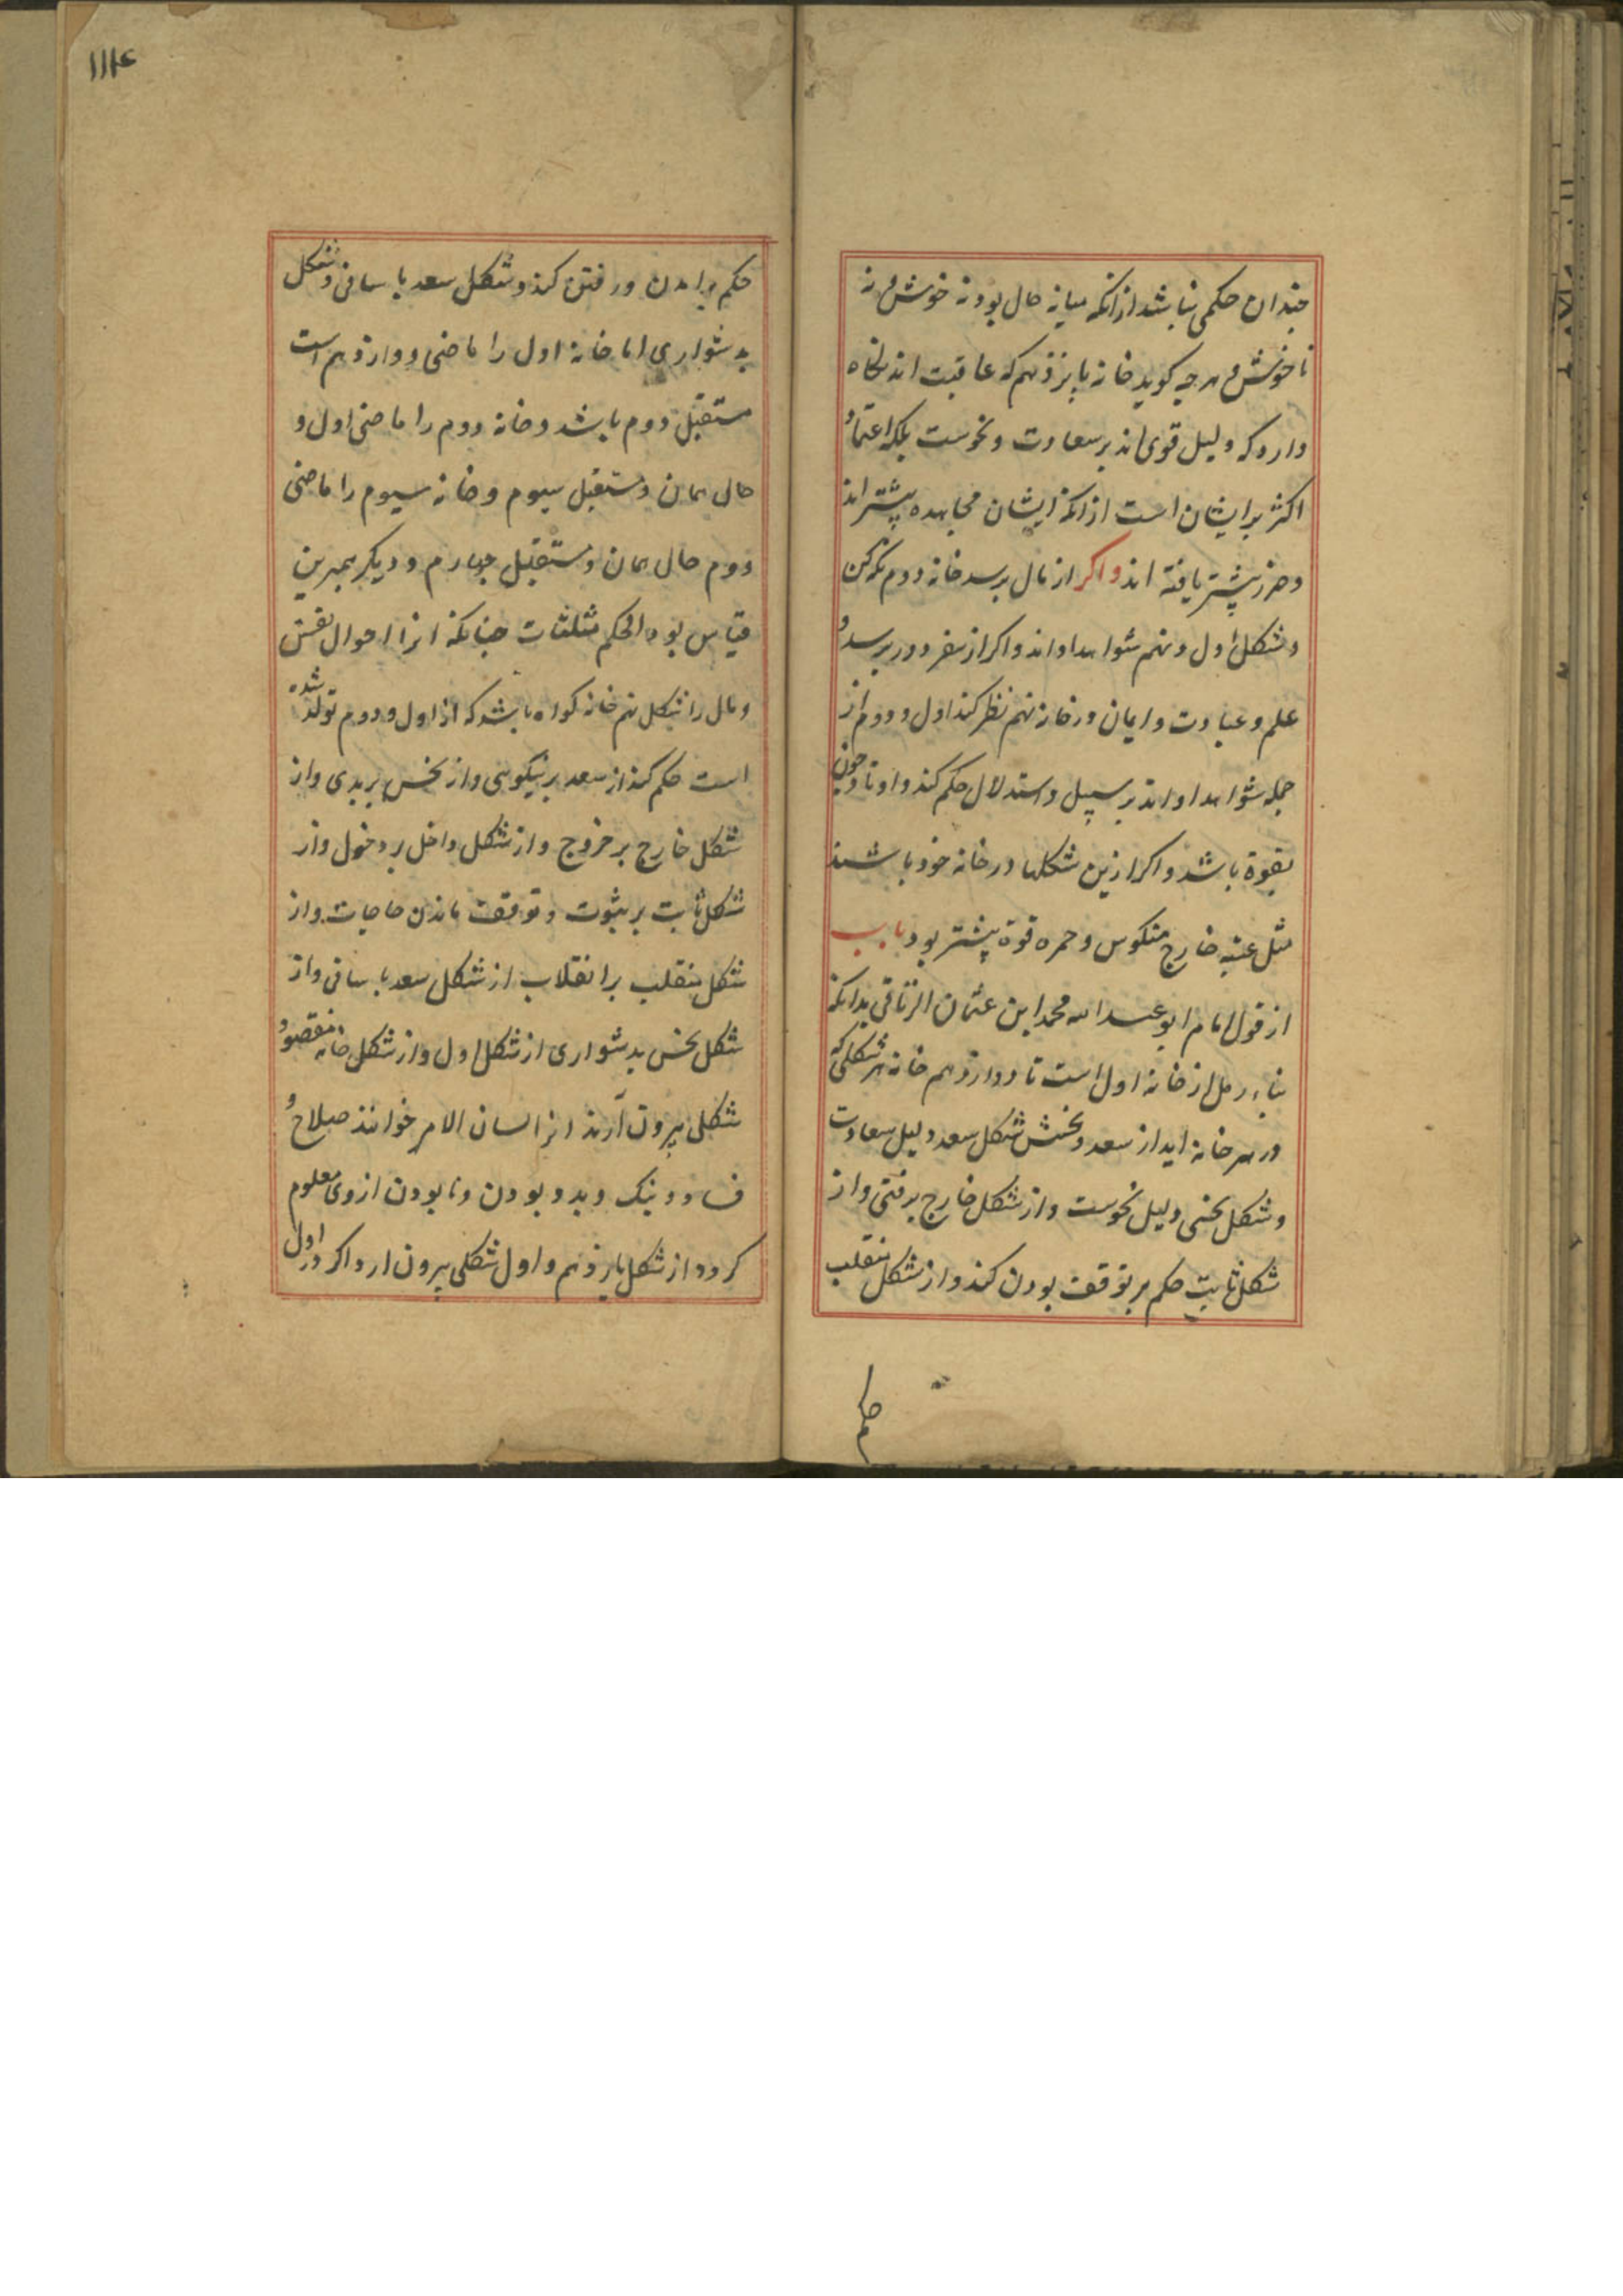 جندان حکمی نباشد ازانکه میانه حال بود نه خوش و نه
ناخوش و هرچه کوید خانه پانزدهم که عاقبت اند نکاه
دارد که دلیل قوی اند بر سعادت و نحوست بلکه اعتماد
اکثر بر ایشان است ازانکه ایشان مجاهده پیشتر اند
و حرز پیشتر یافته اند و اکر از مال برسد خانه دوم نکه کن
و شکل اول و نهم شواهد او اند و اکر از سفر دور برسد و
علم و عبادت و ایمان در خانه نهم نظر کند اول و دوم از
جمله شواهد او اند بر سبیل و استدلال حکم کند و اوتاد چون
بقوة باشد و اکر ازین شکلها در خانه خود باشند
مثل عتبه خارج منکوس و حمره قوة پیشتر بود باب
از قول امام ابو عبد الله محمد ابن عثمان الزناتی بدانکه
بناء رمل از خانه اول است تا دوازدهم خانه هر شکلی که
در هر خانه اید از سعد و نحس شکل سعد دلیل سعادت
و شکل نحس دلیل نحوست و از شکل خارج برفتن و از
شکل ثابت حکم بر توقف بودن کند و از شکل منقلب
حکم
١١٢٤
حکم بر امدن و رفتن کند و شکل سعد باسانی و شکل
بدشواری اما خانه اول را ماضی دوازدهم است
مستقبل دوم باشد و خانه دوم را ماضی اول و
حال همان و مستقبل سیوم و خانه سیوم را ماضی
دوم حال همان و مستقبل چهارم و دیکر همبرین
قیاس بود الحکم مثلثات چنانکه انرا احوال نفس
و مال را شکل نهم خانه کواه باشد که از اول و دوم تولد شده
است حکم کند از سعد بر نیکوی و از نحس بر بدی و از
شکل خارج بر خروج و از شکل داخل بر دخول و از
شکل ثابت بر ثبوت و توقف ماندن حاجات و از
شکل منقلب بر انقلاب از شکل سعد باسانی و از
شکل نحس بدشواری از شکل اول و از شکل خانه مقصود
شکلی بیرون آرند انرا لسان الامر خوانند صلاح و
فساد و نیک و بد و بودن و نابودن از وی معلوم
کردد از شکل پانزدهم و اول شکلی بیرون ارد اکر در اول